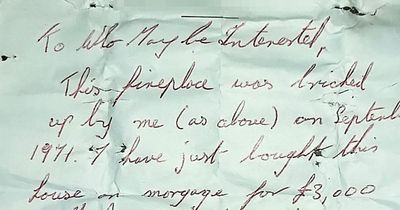 To Who May be Interested,
This fireplace was bricked
up by me (as above) on Septemb
1971. I have just bought this
house on morgage for £3,000